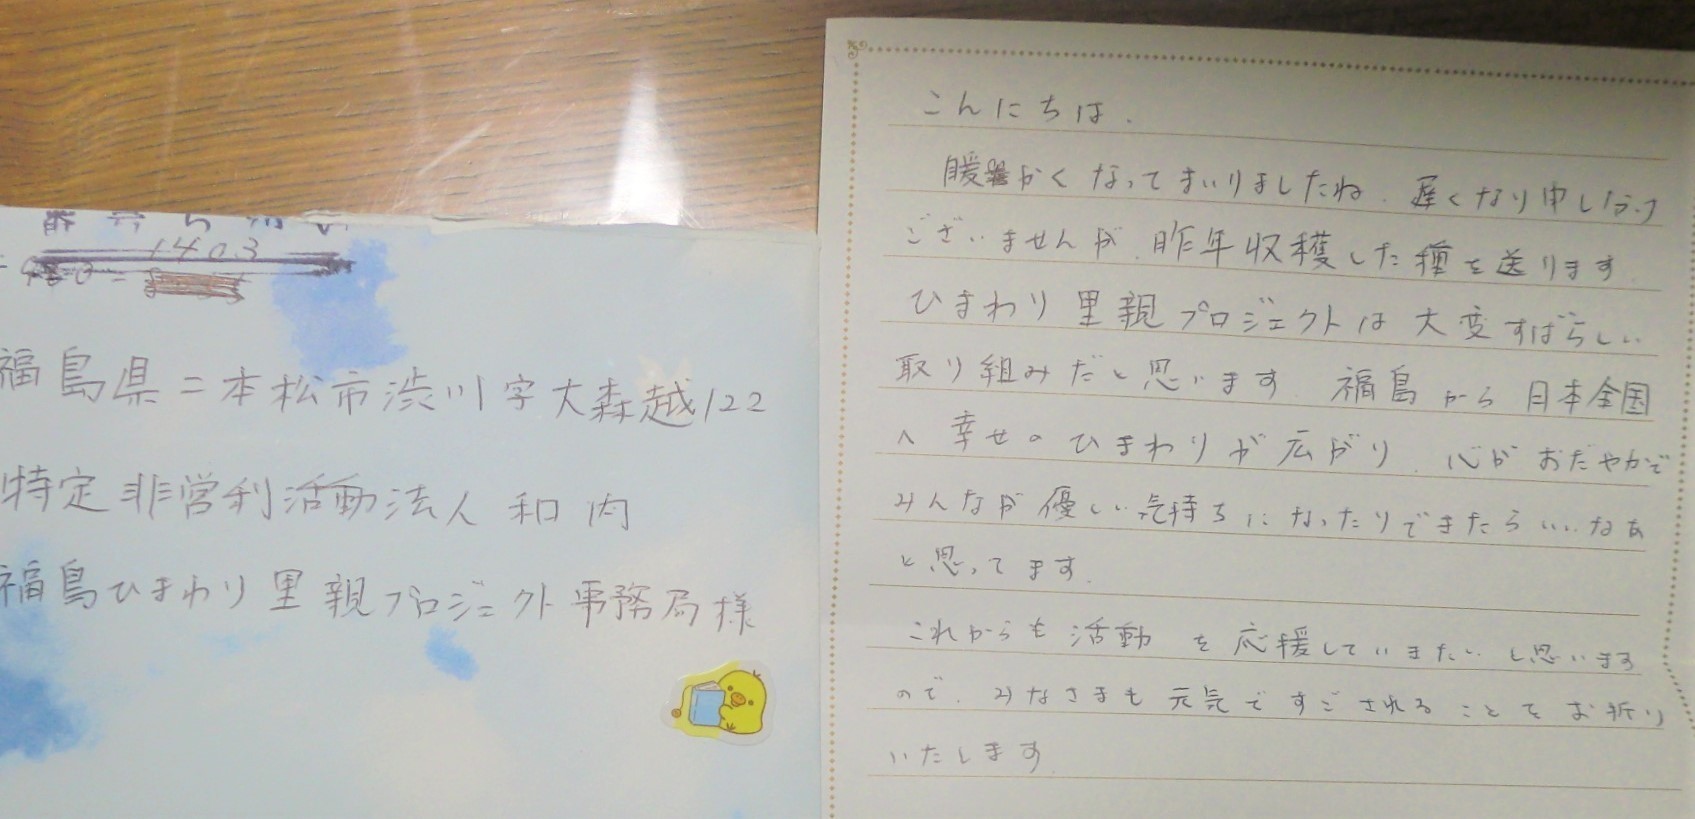 1403
福島県二本松市渋川字大森越122
特定非営利活動法人 和内
福島ひまわり里親プロジェクト事務局様
こんにちは.
暖かくなってまいりましたね. 遅くなり申しわけ
ございませんが、昨年収穫した種を送ります.
ひまわり里親プロジェクトは大変すばらしい
取り組みだと思います. 福島から日本全国
へ幸せのひまわりが広がり、心がおだやかで
みんなが優しい気持ちになったりできたらいいなあ
と思ってます.
これからも活動を応援していきたいと思います
ので、みなさまも元気ですごされることをお祈り
いたします.